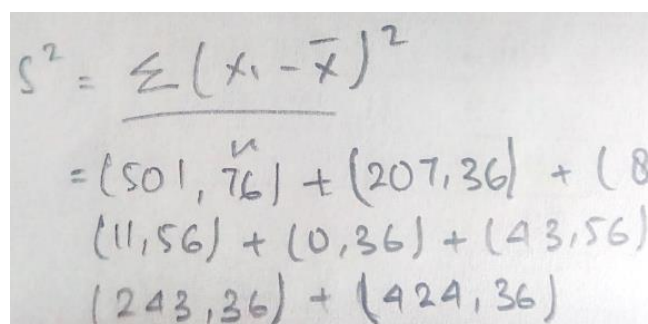 S² = Σ(x₁ - x̄)²
n
= (501,76) + (207,36) + (8
(11,56) + (0,36) + (43,56)
(243,36) + (424,36)